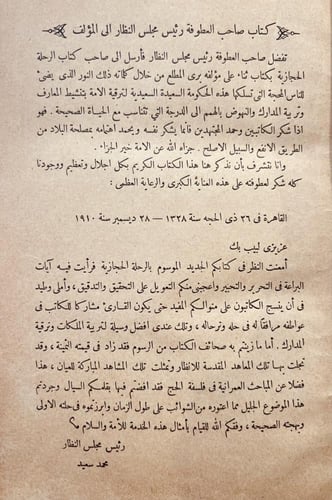 كتاب صاحب العطوفة رئيس مجلس النظار الى المؤلف
تفضل صاحب العطوفة رئيس مجلس النظار فأرسل الى صاحب كتاب الرحلة
الحجازية بكتاب ثناء على مؤلفه يرى المطلع من خلال كلماته ذلك النور الذى يضئ
للناس المحجة التى تسلكها هذه الحكومة السعيدة لترقية الامة بتنشيط المعارف
وتربية المدارك والنهوض بالهمم الى الدرجة التى تتناسب مع الحياة الصحيحة . فهو
اذا شكر الكاتبين وحمد المجتهدين فانما يشكر نفسه ويحمد اهتمامه بمصلحة البلاد من
الطريق الانفع والسبيل الاصلح . جزاه الله عن الامة خير الجزاء .
وانا نتشرف بأن نذكر هنا هذا الكتاب الكريم بكل اجلال وتعظيم ووجودنا
كله شكر لعطوفته على هذه العناية الكبرى والرعاية العظمى :
القاهرة فى ٢٦ ذى الحجه سنة ١٣٢٨ — ٢٨ ديسمبر سنة ١٩١٠
عزيزى لبيب بك
أمعنت النظر فى كتابكم الجديد الموسوم بالرحلة الحجازية فرأيت فيه آيات
البراعة فى التحرير والتحبير واعجبنى منكم التعويل على التحقيق والتدقيق ، وأملى وطيد
فى أن ينسج الكاتبون على منوالكم المفيد حتى يكون القارئ مشاركا للكاتب فى
عواطفه مرافقا له فى حله وترحاله ، وتلك عندى افضل وسيلة لتربية الملكات وترقية
المدارك . أما مازينتم به صحائف الكتاب من الرسوم فقد زاد فى قيمته الثمينة ، وقد
تجلت بها تلك المعاهد المقدسة للانظار وتمثلت تلك المشاهد المباركة للعيان ، هذا
فضلا عن المباحث العمرانية فى فلسفة الحج فقد افضتم فيها بقلمكم السيال وجردتم
هذا الموضوع الجليل مما اعتوره من الشوائب على طول الزمان وابرزتموه فى حلته الاولى
وبهجته الصحيحة ، وفقكم الله للقيام بأمثال هذه الخدمة للأمة والسلام
رئيس مجلس النظار
محمد سعيد